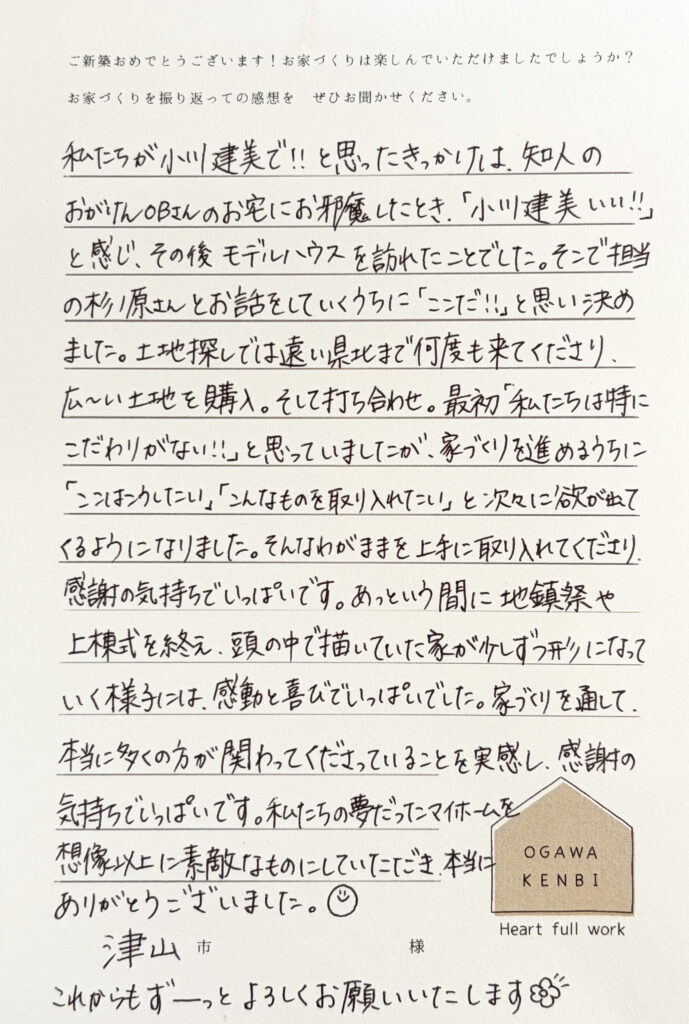 ご新築おめでとうございます！お家づくりは楽しんでいただけましたでしょうか？
お家づくりを振り返っての感想を　ぜひお聞かせください。
私たちが小川建美で!! と思ったきっかけは、知人の
おがけんOBさんのお宅にお邪魔したとき、「小川建美いい!!」
と感じ、その後モデルハウスを訪れたことでした。そこで担当
の杉原さんとお話をしていくうちに「ここだ!!」と思い決め
ました。土地探しでは遠い県北まで何度も来てくださり、
広〜い土地を購入。そして打ち合わせ。最初「私たちは特に
こだわりがない!!」と思っていましたが、家づくりを進めるうちに
「ここはこうしたい」「こんなものを取り入れたい」と次々に欲がでて
くるようになりました。そんなわがままを上手に取り入れてくださり、
感謝の気持ちでいっぱいです。あっという間に地鎮祭や
上棟式を終え、頭の中で描いていた家が少しずつ形になって
いく様子には、感動と喜びでいっぱいでした。家づくりを通して、
本当に多くの方が関わってくださっていることを実感し、感謝の
気持ちでいっぱいです。私たちの夢だったマイホームを
想像以上に素敵なものにしていただき、本当に
ありがとうございました。
OGAWA
KENBI
Heart full work
津山市　様
これからもずーっとよろしくお願いいたします